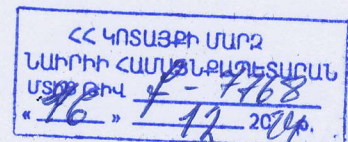 ՀՀ ԿՈՏԱՅՔԻ ՄԱՐԶ
ՆԱԻՐԻԻ ՀԱՄԱՅՆՔԱՊԵՏԱՐԱՆ
ՄՏԻՑ ԹԻՎ 7168
« 16 » 12 2024թ.